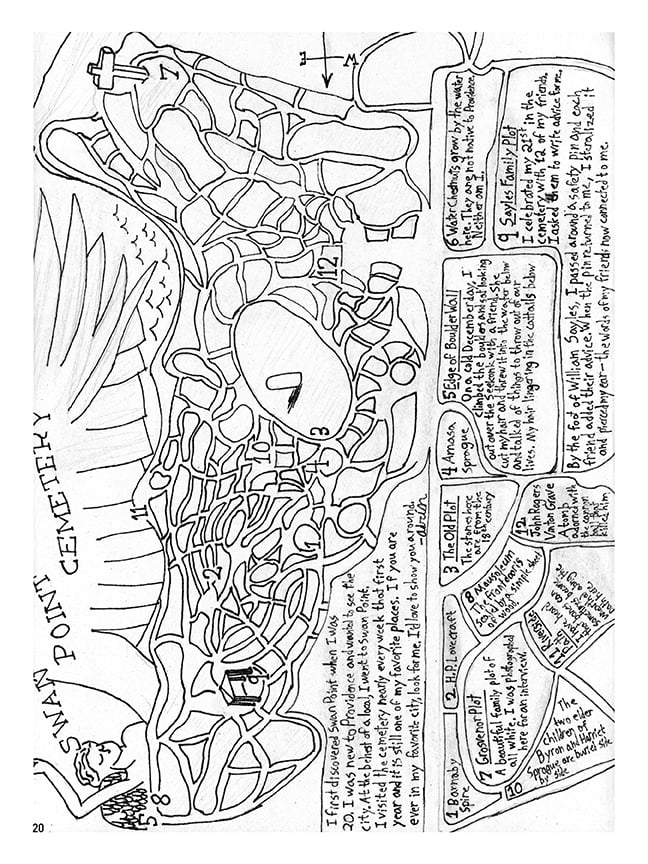 SWAN POINT
CEMETERY
W
E
7
12
3
4
10
1
11
2
9
8
5
I first discovered Swan Point when I was
20. I was new to Providence and wanted to see the
city. At the behest of a local, I went to Swan Point.
I visited the cemetery nearly every week that first
year and it is still one of my favorite places. If you are
ever in my favorite city, look for me. I'd love to show you around.
1 Barnaby
Spire
2 H.P. Lovecraft
3 The Old Plot
The stones here
are from the
18th century
4 Amasa
Sprague
5 Edge of Boulder Wall
On a cold December day, I
climbed the boulders and sat looking
out over the Seekonk with a friend. She
cut my hair and threw it into the water below
and talked of things to throw out of our
lives. My hair lingering in the cattails below
6 Water Chestnuts grow by the water
here. They are not native to Providence.
Neither am I.
7 Grosvenor Plot
A beautiful family plot of
all white. I was photographed
here for an interview.
8 Mausoleum
The front door is
sealed by a simple sheet
of wood.
9 Sayles Family Plot
I celebrated my 21st in the
cemetery with 12 of my friends.
I asked them to write advice for me.
By the foot of William Sayles, I passed around a safety pin and each
friend added their advice. When the pin returned to me, I sterilized it
and pierced my ear - the words of my friends now connected to me.
10
The
two elder
Children of
Byron and Harriet
Sprague are buried side
by side
11 Riverside
Path
I have heard
that
12
John Rogers
Vinton Grave
A tomb
adorned with
the cannon
ball that
killed him
20